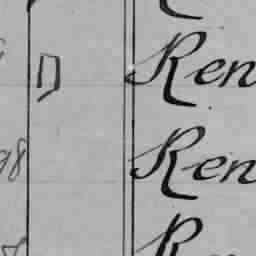 D Ren
98 Ren
R